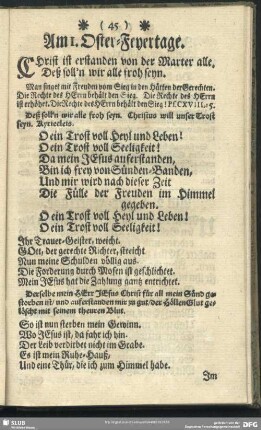 ( 45 )
Am I. Oster-Feyertage.
Christ ist erstanden von der Marter alle,
Deß soll'n wir alle froh seyn.
Man singet mit Freuden vom Sieg in den Hütten der Gerechten.
Die Rechte des HErrn behält den Sieg. Die Rechte des HErrn
ist erhöhet. Die Rechte des HErrn behält den Sieg! Ps. CXVIII, 15.
Deß soll'n wir alle froh seyn. Christus will unser Trost
seyn. Kyrieeleis.
O ein Trost voll Heyl und Leben!
O ein Trost voll Seeligkeit!
Da mein JEsus auferstanden,
Bin ich frey von Sünden-Banden,
Und mir wird nach dieser Zeit
Die Fülle der Freuden im Himmel
gegeben.
O ein Trost voll Heyl und Leben!
O ein Trost voll Seeligkeit!
Ihr Trauer-Geister, weicht.
GOtt, der gerechte Richter, streicht
Nun meine Schulden völlig aus.
Die Forderung durch Mosen ist geschlichtet.
Mein JEsus hat die Zahlung gantz entrichtet.
Derselbe mein HErr JEsus Christ für all mein Sünd ge-
storben ist/ und auferstanden mir zu gut/ der Höllen Glut ge-
löscht mit seinem theuren Blut.
So ist nun sterben mein Gewinn.
Wo JEsus ist, da fahr ich hin.
Der Leib verdirbet nicht im Grabe.
Es ist mein Ruhe-Hauß,
Und eine Thür, die ich zum Himmel habe.
Im
SLUB
DFG